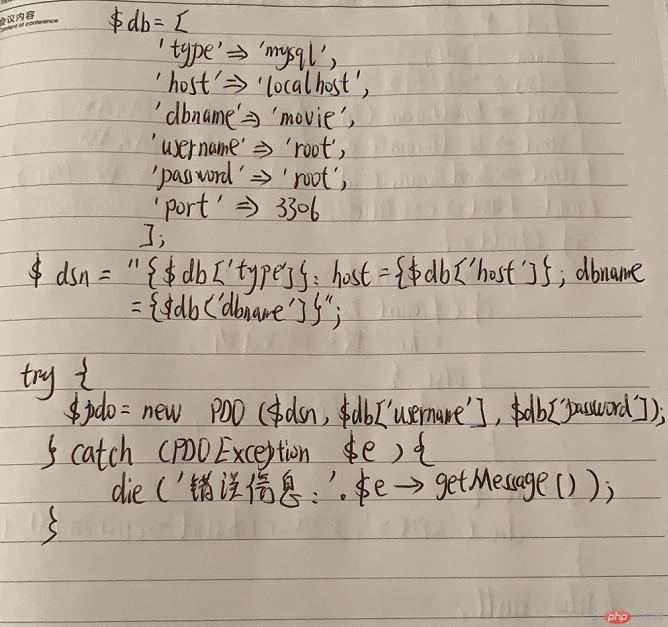 会议内容
Content of conference
$db = [
'type' => 'mysql',
'host' => 'localhost',
'dbname' => 'movie',
'username' => 'root',
'password' => 'root',
'port' => 3306
];
$dsn = "{$db['type']}: host={$db['host']}; dbname
={$db['dbname']}";
try {
$pdo = new PDO ($dsn, $db['username'], $db['password']);
} catch (PDOException $e) {
die ('错误信息:'.$e->getMessage());
}
php